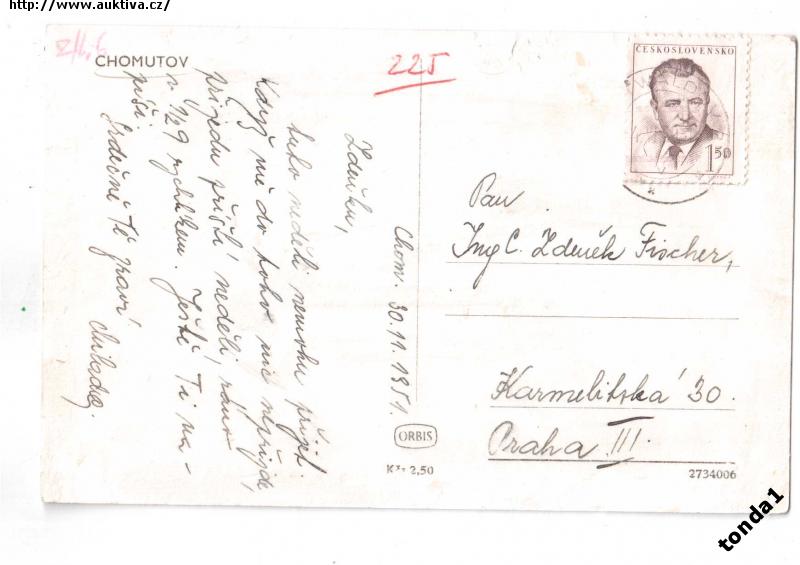 http://www.auktiva.cz/
CHOMUTOV
225
ČESKOSLOVENSKO
1.50
Chom. 30.11.1951.
Zdeňku,
tuto neděli nemohu přijet.
Když mi do toho nic nepřijde,
přijedu příští neděli, ráno
v ½9 rychlíkem. Ještě Ti na-
píši. Srdečně Tě zdraví
Pan
Ing C. Zdeněk Fischer,
Karmelitská 30.
Praha III.
ORBIS
Kčs 2,50
2734006
tonda1